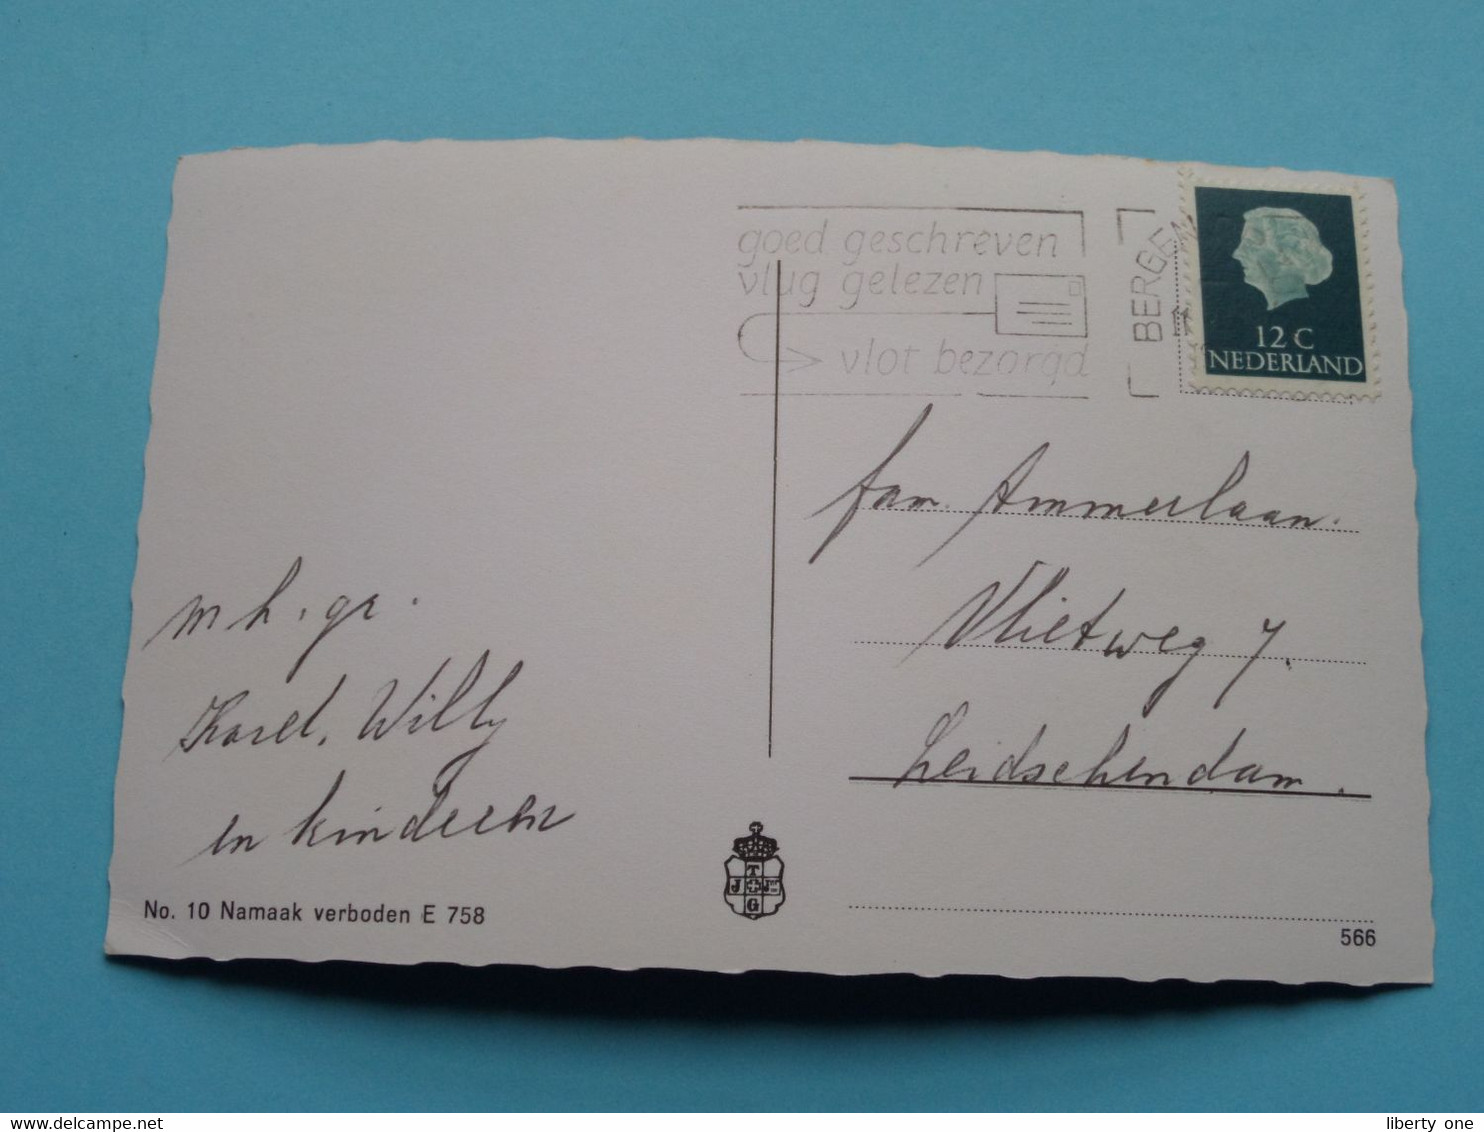 goed geschreven
vlug gelezen
vlot bezorgd
BERGE
12 C
NEDERLAND
fam. Ammerlaan.
Vlietweg 7.
Leidschendam.
m h. gr.
Karel, Willy
en kinderen
T
J
G
No. 10 Namaak verboden E 758
566
liberty one